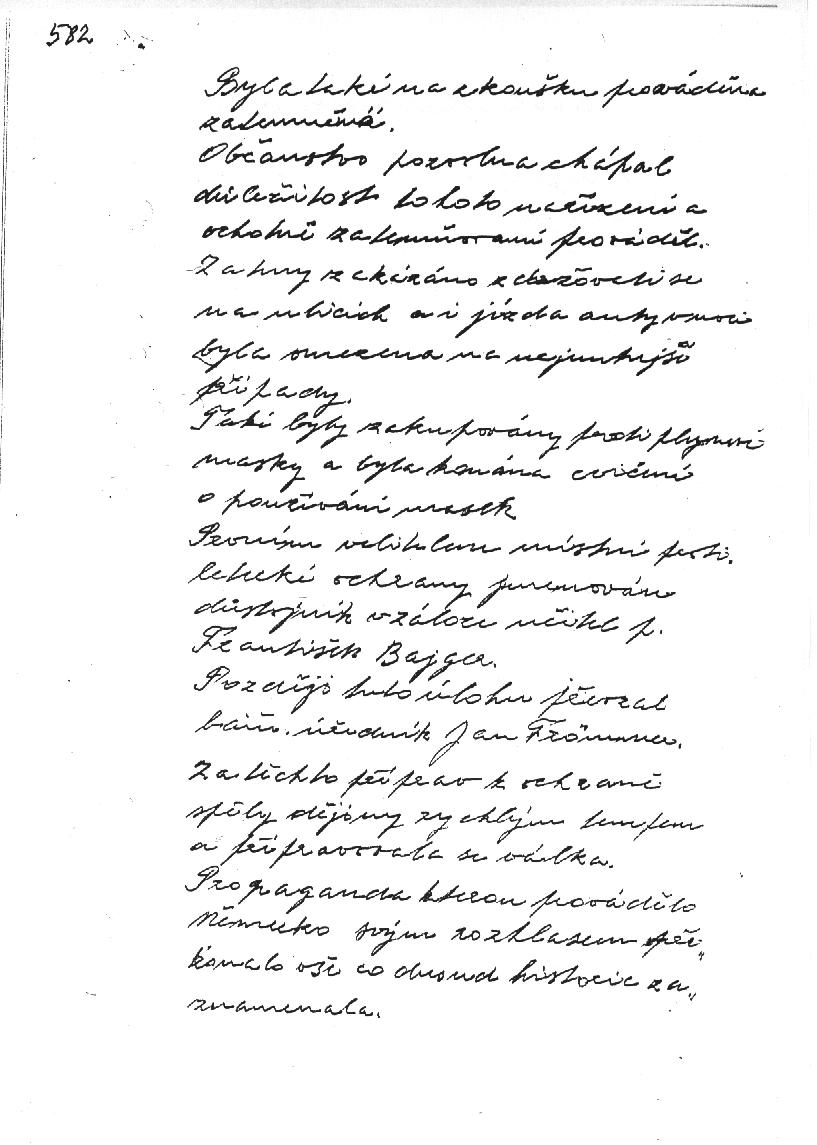 582
Byla také na zkoušku prováděna
zatemněná.
Občanstvo pozorlna chápal
důležitost tohoto nařízení a
ochotně zatemňovaní prováděl.
Za tmy zakázáno zdržovati se
na ulicích a i jízda auty v noci
byla omezena na nejnutnjší
případy.
Také byly zakupovány proti plynové
masky a byla konána cvičení
o používání masek
Prvním velitelem místní proti.
letecké ochrany jmenován
důstojník v záloze učitel p.
František Bajger.
Později tuto úlohu převzal
báň. úředník Jan
Za těchto příprav k ochraně
spěly dějiny rychlým tempem
a připravovala se válka.
Propaganda kterou provádělo
Německo svým rozhlasem pře„
konalo vše co dosud historie za„
znamenala.